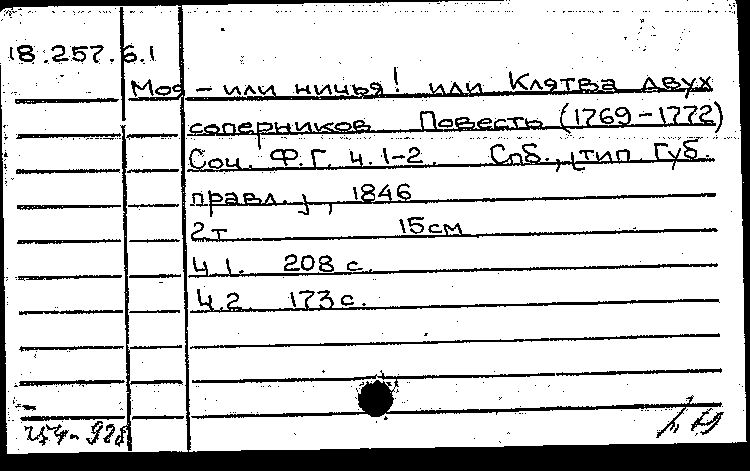 18.257.6.1
Моя - или ничья! или Клятва двух
соперников Повесть (1769-1772)
Соч. Ф.Г. ч. 1-2. Спб., [тип. Губ.
правл.], 1846
2 т 15 см
Ч.1. 208 с.
Ч.2. 173 с.
254-928